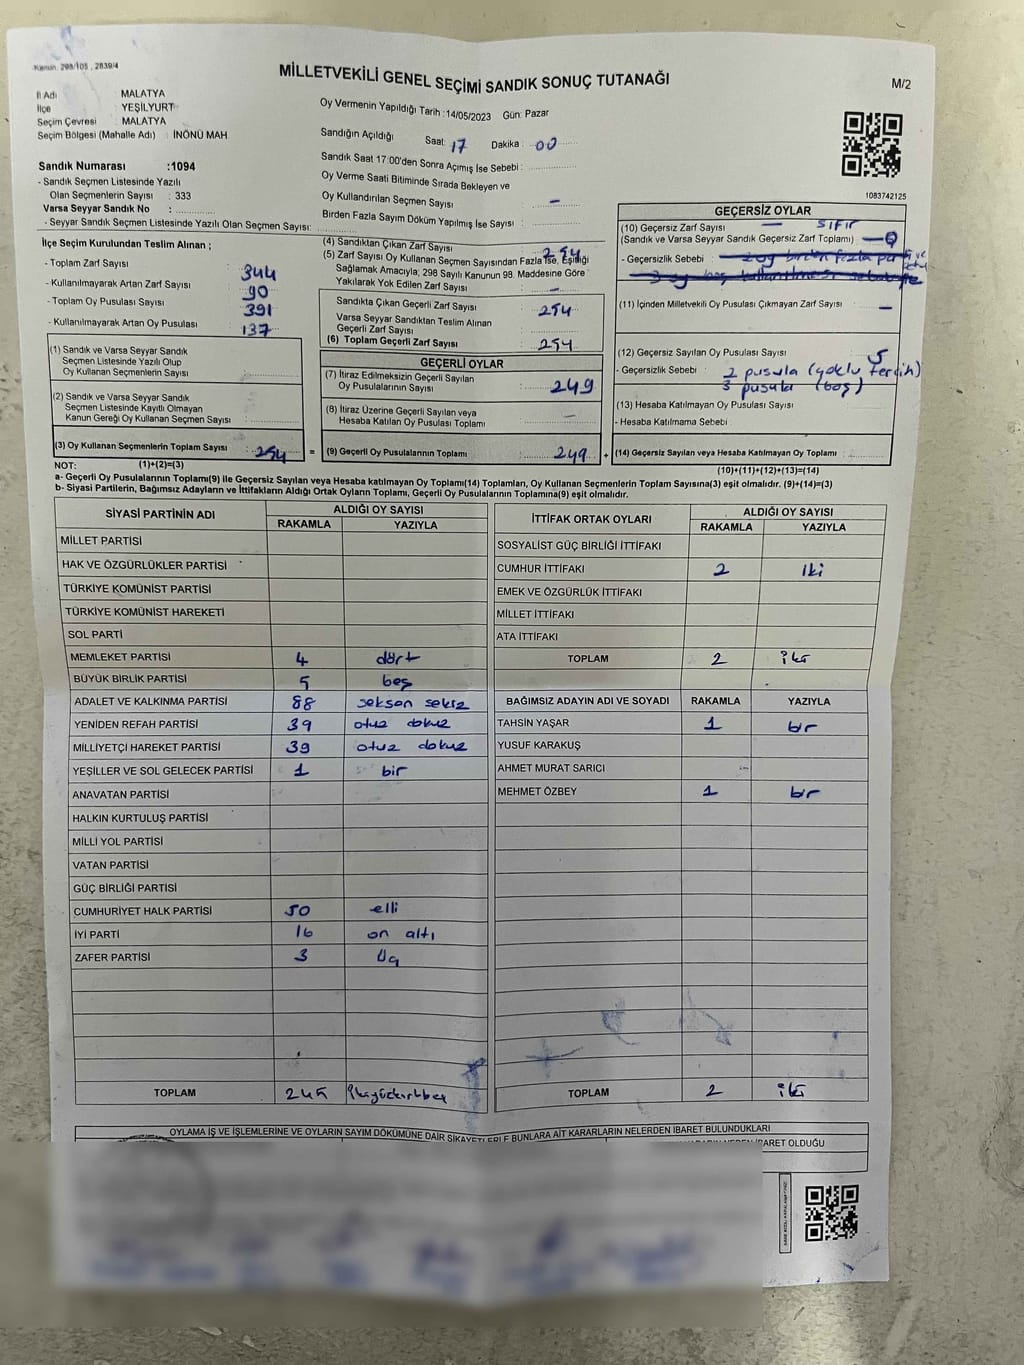 Kanun. 298/105 , 2839/4
MİLLETVEKİLİ GENEL SEÇİMİ SANDIK SONUÇ TUTANAĞI
M/2
İl Adı : MALATYA
İlçe : YEŞİLYURT
Seçim Çevresi : MALATYA
Seçim Bölgesi (Mahalle Adı) : İNÖNÜ MAH
Sandık Numarası :1094
- Sandık Seçmen Listesinde Yazılı
Olan Seçmenlerin Sayısı : 333
Varsa Seyyar Sandık No :
- Seyyar Sandık Seçmen Listesinde Yazılı Olan Seçmen Sayısı:
Oy Vermenin Yapıldığı Tarih :14/05/2023 Gün: Pazar
Sandığın Açıldığı Saat: 17 Dakika : 00
Sandık Saat 17:00'den Sonra Açımış İse Sebebi :
Oy Verme Saati Bitiminde Sırada Bekleyen ve
Oy Kullandırılan Seçmen Sayısı : –
Birden Fazla Sayım Döküm Yapılmış İse Sayısı :
1083742125
İlçe Seçim Kurulundan Teslim Alınan ;
- Toplam Zarf Sayısı : 344
- Kullanılmayarak Artan Zarf Sayısı : 90
- Toplam Oy Pusulası Sayısı : 391
- Kullanılmayarak Artan Oy Pusulası : 137
(1) Sandık ve Varsa Seyyar Sandık
Seçmen Listesinde Yazılı Olup
Oy Kullanan Seçmenlerin Sayısı :
(2) Sandık ve Varsa Seyyar Sandık
Seçmen Listesinde Kayıtlı Olmayan
Kanun Gereği Oy Kullanan Seçmen Sayısı :
(3) Oy Kullanan Seçmenlerin Toplam Sayısı : 254 =
(4) Sandıktan Çıkan Zarf Sayısı : 254
(5) Zarf Sayısı Oy Kullanan Seçmen Sayısından Fazla İse, Eşitliği
Sağlamak Amacıyla; 298 Sayılı Kanunun 98. Maddesine Göre
Yakılarak Yok Edilen Zarf Sayısı : –
Sandıkta Çıkan Geçerli Zarf Sayısı : 254
Varsa Seyyar Sandıktan Teslim Alınan
Geçerli Zarf Sayısı :
(6) Toplam Geçerli Zarf Sayısı : 254
GEÇERLİ OYLAR
(7) İtiraz Edilmeksizin Geçerli Sayılan
Oy Pusulalarının Sayısı : 249
(8) İtiraz Üzerine Geçerli Sayılan veya
Hesaba Katılan Oy Pusulaları Toplamı : –
(9) Geçerli Oy Pusulalarının Toplamı : 249 +
GEÇERSİZ OYLAR
(10) Geçersiz Zarf Sayısı : – SIFIR
(Sandık ve Varsa Seyyar Sandık Geçersiz Zarf Toplamı) – 0
- Geçersizlik Sebebi :
(11) İçinden Milletvekili Oy Pusulası Çıkmayan Zarf Sayısı : –
(12) Geçersiz Sayılan Oy Pusulası Sayısı : 5
- Geçersizlik Sebebi : 2 pusula (çoklu tercih)
3 pusula (boş)
(13) Hesaba Katılmayan Oy Pusulası Sayısı :
- Hesaba Katılmama Sebebi :
(14) Geçersiz Sayılan veya Hesaba Katılmayan Oy Toplamı :
NOT: (1)+(2)=(3)
(10)+(11)+(12)+(13)=(14)
a- Geçerli Oy Pusulalarının Toplamı(9) ile Geçersiz Sayılan veya Hesaba katılmayan Oy Toplamı(14) Toplamları, Oy Kullanan Seçmenlerin Toplam Sayısına(3) eşit olmalıdır. (9)+(14)=(3)
b- Siyasi Partilerin, Bağımsız Adayların ve İttifakların Aldığı Ortak Oyların Toplamı, Geçerli Oy Pusulalarının Toplamına(9) eşit olmalıdır.
SİYASİ PARTİNİN ADI ALDIĞI OY SAYISI
RAKAMLA YAZIYLA
MİLLET PARTİSİ
HAK VE ÖZGÜRLÜKLER PARTİSİ
TÜRKİYE KOMÜNİST PARTİSİ
TÜRKİYE KOMÜNİST HAREKETİ
SOL PARTİ
MEMLEKET PARTİSİ 4 dört
BÜYÜK BİRLİK PARTİSİ 5 beş
ADALET VE KALKINMA PARTİSİ 88 seksen sekiz
YENİDEN REFAH PARTİSİ 39 otuz dokuz
MİLLİYETÇİ HAREKET PARTİSİ 39 otuz dokuz
YEŞİLLER VE SOL GELECEK PARTİSİ 1 bir
ANAVATAN PARTİSİ
HALKIN KURTULUŞ PARTİSİ
MİLLİ YOL PARTİSİ
VATAN PARTİSİ
GÜÇ BİRLİĞİ PARTİSİ
CUMHURİYET HALK PARTİSİ 50 elli
İYİ PARTİ 16 on altı
ZAFER PARTİSİ 3 Üç
TOPLAM 245 İkiyüzkırkbeş
İTTİFAK ORTAK OYLARI ALDIĞI OY SAYISI
RAKAMLA YAZIYLA
SOSYALİST GÜÇ BİRLİĞİ İTTİFAKI
CUMHUR İTTİFAKI 2 İki
EMEK VE ÖZGÜRLÜK İTTİFAKI
MİLLET İTTİFAKI
ATA İTTİFAKI
TOPLAM 2 iki
BAĞIMSIZ ADAYIN ADI VE SOYADI RAKAMLA YAZIYLA
TAHSİN YAŞAR 1 bir
YUSUF KARAKUŞ
AHMET MURAT SARICI
MEHMET ÖZBEY 1 bir
TOPLAM 2 iki
OYLAMA İŞ VE İŞLEMLERİNE VE OYLARIN SAYIM DÖKÜMÜNE DAİR ŞİKAYETLER İLE BUNLARA AİT KARARLARIN NELERDEN İBARET BULUNDUKLARI
İBARET OLDUĞU